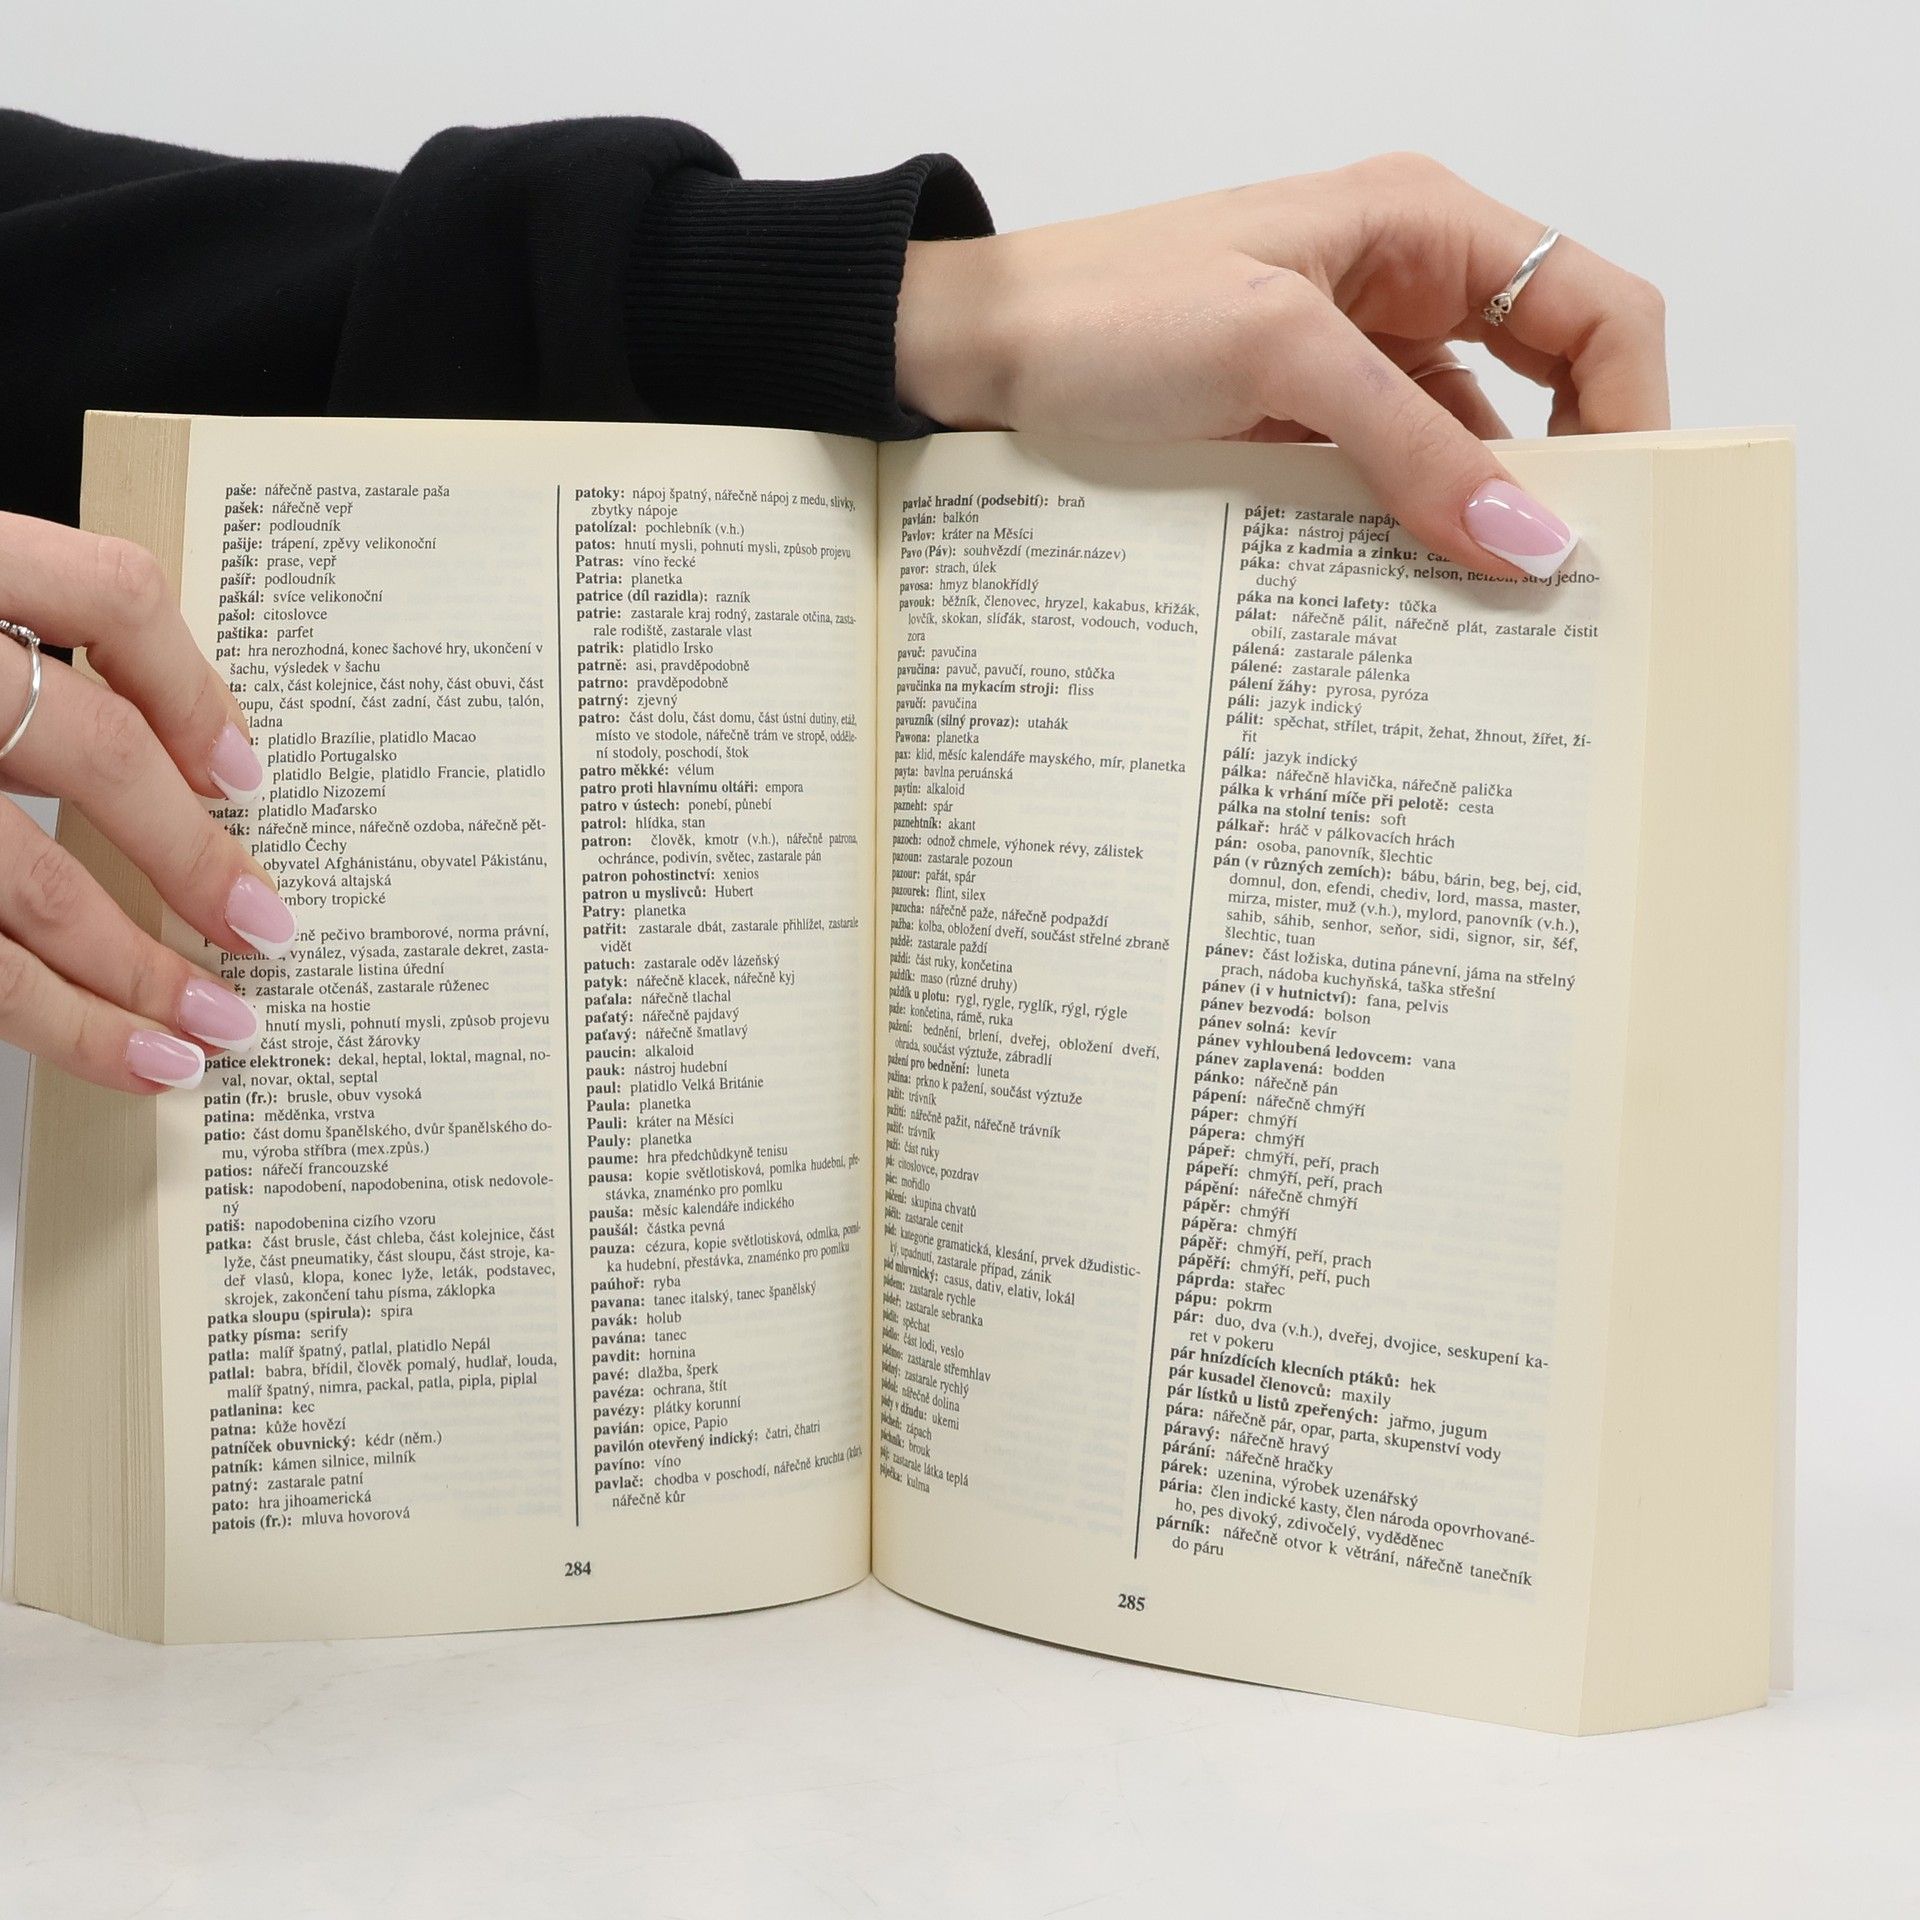 paše: nářečně pastva, zastarale paša
pašek: nářečně vepř
pašer: podloudník
pašije: trápení, zpěvy velikonoční
pašík: prase, vepř
pašíř: podloudník
paškál: svíce velikonoční
pašol: citoslovce
paštika: parfet
pat: hra nerozhodná, konec šachové hry, ukončení v
šachu, výsledek v šachu
calx, část kolejnice, část nohy, část obuvi, část
část spodní, část zadní, část zubu, talón,
platidlo Brazílie, platidlo Macao
platidlo Portugalsko
platidlo Belgie, platidlo Francie, platidlo
platidlo Nizozemí
pataz: platidlo Maďarsko
nářečně mince, nářečně ozdoba, nářečně pět-
platidlo Čechy
obyvatel Afghánistánu, obyvatel Pákistánu,
jazyková altajská
tropické
pečivo bramborové, norma právní,
vynález, výsada, zastarale dekret, zasta-
rale dopis, zastarale listina úřední
zastarale otčenáš, zastarale růženec
miska na hostie
hnutí mysli, pohnutí mysli, způsob projevu
část stroje, část žárovky
patice elektronek: dekal, heptal, loktal, magnal, no-
val, novar, oktal, septal
patin (fr.): brusle, obuv vysoká
patina: měděnka, vrstva
patio: část domu španělského, dvůr španělského do-
mu, výroba stříbra (mex.způs.)
patios: nářečí francouzské
patisk: napodobení, napodobenina, otisk nedovole-
ný
patiš: napodobenina cizího vzoru
patka: část brusle, část chleba, část kolejnice, část
lyže, část pneumatiky, část sloupu, část stroje, ka-
deř vlasů, klopa, konec lyže, leták, podstavec,
skrojek, zakončení tahu písma, záklopka
patka sloupu (spirula): spira
patky písma: serify
patla: malíř špatný, patlal, platidlo Nepál
patlal: babra, břídil, člověk pomalý, hudlař, louda,
malíř špatný, nimra, packal, patla, pipla, piplal
patlanina: kec
patna: kůže hovězí
patníček obuvnický: kédr (něm.)
patník: kámen silnice, milník
patný: zastarale patní
pato: hra jihoamerická
patois (fr.): mluva hovorová
patoky: nápoj špatný, nářečně nápoj z medu, slivky,
zbytky nápoje
patolízal: pochlebník (v.h.)
patos: hnutí mysli, pohnutí mysli, způsob projevu
Patras: víno řecké
Patria: planetka
patrice (díl razidla): razník
patrie: zastarale kraj rodný, zastarale otčina, zasta-
rale rodiště, zastarale vlast
patrik: platidlo Irsko
patrně: asi, pravděpodobně
patrno: pravděpodobně
patrný: zjevný
patro: část dolu, část domu, část ústní dutiny, etáž,
místo ve stodole, nářečně trám ve stropě, odděle-
ní stodoly, poschodí, štok
patro měkké: vélum
patro proti hlavnímu oltáři: empora
patro v ústech: ponebí, půnebí
patrol: hlídka, stan
patron: člověk, kmotr (v.h.), nářečně patrona,
ochránce, podivín, světec, zastarale pán
patron pohostinství: xenios
patron u myslivců: Hubert
Patry: planetka
patřit: zastarale dbát, zastarale přihlížet, zastarale
vidět
patuch: zastarale oděv lázeňský
patyk: nářečně klacek, nářečně kyj
paťala: nářečně tlachal
paťatý: nářečně pajdavý
paťavý: nářečně šmatlavý
paucin: alkaloid
pauk: nástroj hudební
paul: platidlo Velká Británie
Paula: planetka
Pauli: kráter na Měsíci
Pauly: planetka
paume: hra předchůdkyně tenisu
pausa: kopie světlotisková, pomlka hudební, pře-
stávka, znaménko pro pomlku
pauša: měsíc kalendáře indického
paušál: částka pevná
pauza: cézura, kopie světlotisková, odmlka, poml-
ka hudební, přestávka, znaménko pro pomlku
paúhoř: ryba
pavana: tanec italský, tanec španělský
pavák: holub
pavána: tanec
pavdit: hornina
pavé: dlažba, šperk
pavéza: ochrana, štít
pavézy: plátky korunní
pavián: opice, Papio
pavilón otevřený indický: čatri, čhatri
pavíno: víno
pavlač: chodba v poschodí, nářečně kruchta (kůr),
nářečně kůr
284
pavlač hradní (podsebití): braň
pavlán: balkón
Pavlov: kráter na Měsíci
Pavo (Páv): souhvězdí (mezinár.název)
pavor: strach, úlek
pavosa: hmyz blanokřídlý
pavouk: běžník, členovec, hryzel, kakabus, křižák,
lovčík, skokan, slíďák, starost, vodouch, voduch,
zora
pavuč: pavučina
pavučina: pavuč, pavučí, rouno, stůčka
pavučinka na mykacím stroji: fliss
pavučí: pavučina
pavuzník (silný provaz): utahák
Pawona: planetka
pax: klid, měsíc kalendáře mayského, mír, planetka
payta: bavlna peruánská
paytin: alkaloid
pazneht: spár
paznehtník: akant
pazoch: odnož chmele, výhonek révy, zálistek
pazoun: zastarale pozoun
pazour: pařát, spár
pazourek: flint, silex
pazucha: nářečně paže, nářečně podpaždí
pažba: kolba, obložení dveří, součást střelné zbraně
paždě: zastarale paždí
paždí: část ruky, končetina
paždík: maso (různé druhy)
paždík u plotu: rygl, rygle, ryglík, rýgl, rýgle
paže: končetina, rámě, ruka
pažení: bednění, brlení, dveřej, obložení dveří,
ohrada, součást výztuže, zábradlí
pažení pro bednění: luneta
pažina: prkno k pažení, součást výztuže
pažit: trávník
pažití: nářečně pažit, nářečně trávník
pažiť: trávník
paží: část ruky
pá: citoslovce, pozdrav
pác: mořidlo
páčení: skupina chvatů
páčit: zastarale cenit
pád: kategorie gramatická, klesání, prvek džudistic-
ký, upadnutí, zastarale případ, zánik
pád mluvnický: casus, dativ, elativ, lokál
pádem: zastarale rychle
pádeř: zastarale sebranka
pádit: spěchat
pádlo: část lodi, veslo
pádmo: zastarale střemhlav
pádný: zastarale rychlý
pádol: nářečně dolina
pády v džudu: ukemi
pácheň: zápach
páchník: brouk
páj: zastarale látka teplá
páječka: kulma
pájet: zastarale
pájka: nástroj pájecí
pájka z kadmia a zinku:
páka: chvat zápasnický, nelson, stroj jedno-
duchý
páka na konci lafety: tůčka
pálat: nářečně pálit, nářečně plát, zastarale čistit
obilí, zastarale mávat
pálená: zastarale pálenka
pálené: zastarale pálenka
pálení žáhy: pyrosa, pyróza
páli: jazyk indický
pálit: spěchat, střílet, trápit, žehat, žhnout, žířet, ží-
řit
pálí: jazyk indický
pálka: nářečně hlavička, nářečně palička
pálka k vrhání míče při pelotě: cesta
pálka na stolní tenis: soft
pálkař: hráč v pálkovacích hrách
pán: osoba, panovník, šlechtic
pán (v různých zemích): bábu, bárin, beg, bej, cid,
domnul, don, efendi, chediv, lord, massa, master,
mirza, mister, muž (v.h.), mylord, panovník (v.h.),
sahib, sáhib, senhor, seňor, sidi, signor, sir, šéf,
šlechtic, tuan
pánev: část ložiska, dutina pánevní, jáma na střelný
prach, nádoba kuchyňská, taška střešní
pánev (i v hutnictví): fana, pelvis
pánev bezvodá: bolson
pánev solná: kevír
pánev vyhloubená ledovcem: vana
pánev zaplavená: bodden
pánko: nářečně pán
pápení: nářečně chmýří
páper: chmýří
pápera: chmýří
pápeř: chmýří, peří, prach
pápeří: chmýří, peří, prach
pápění: nářečně chmýří
pápěr: chmýří
pápěra: chmýří
pápěř: chmýří, peří, prach
pápěří: chmýří, peří, puch
páprda: stařec
pápu: pokrm
pár: duo, dva (v.h.), dveřej, dvojice, seskupení ka-
ret v pokeru
pár hnízdících klecních ptáků: hek
pár kusadel členovců: maxily
pár lístků u listů zpeřených: jařmo, jugum
pára: nářečně pár, opar, parta, skupenství vody
páravý: nářečně hravý
párání: nářečně hračky
párek: uzenina, výrobek uzenářský
pária: člen indické kasty, člen národa opovrhované-
ho, pes divoký, zdivočelý, vyděděnec
párník: nářečně otvor k větrání, nářečně tanečník
do páru
285